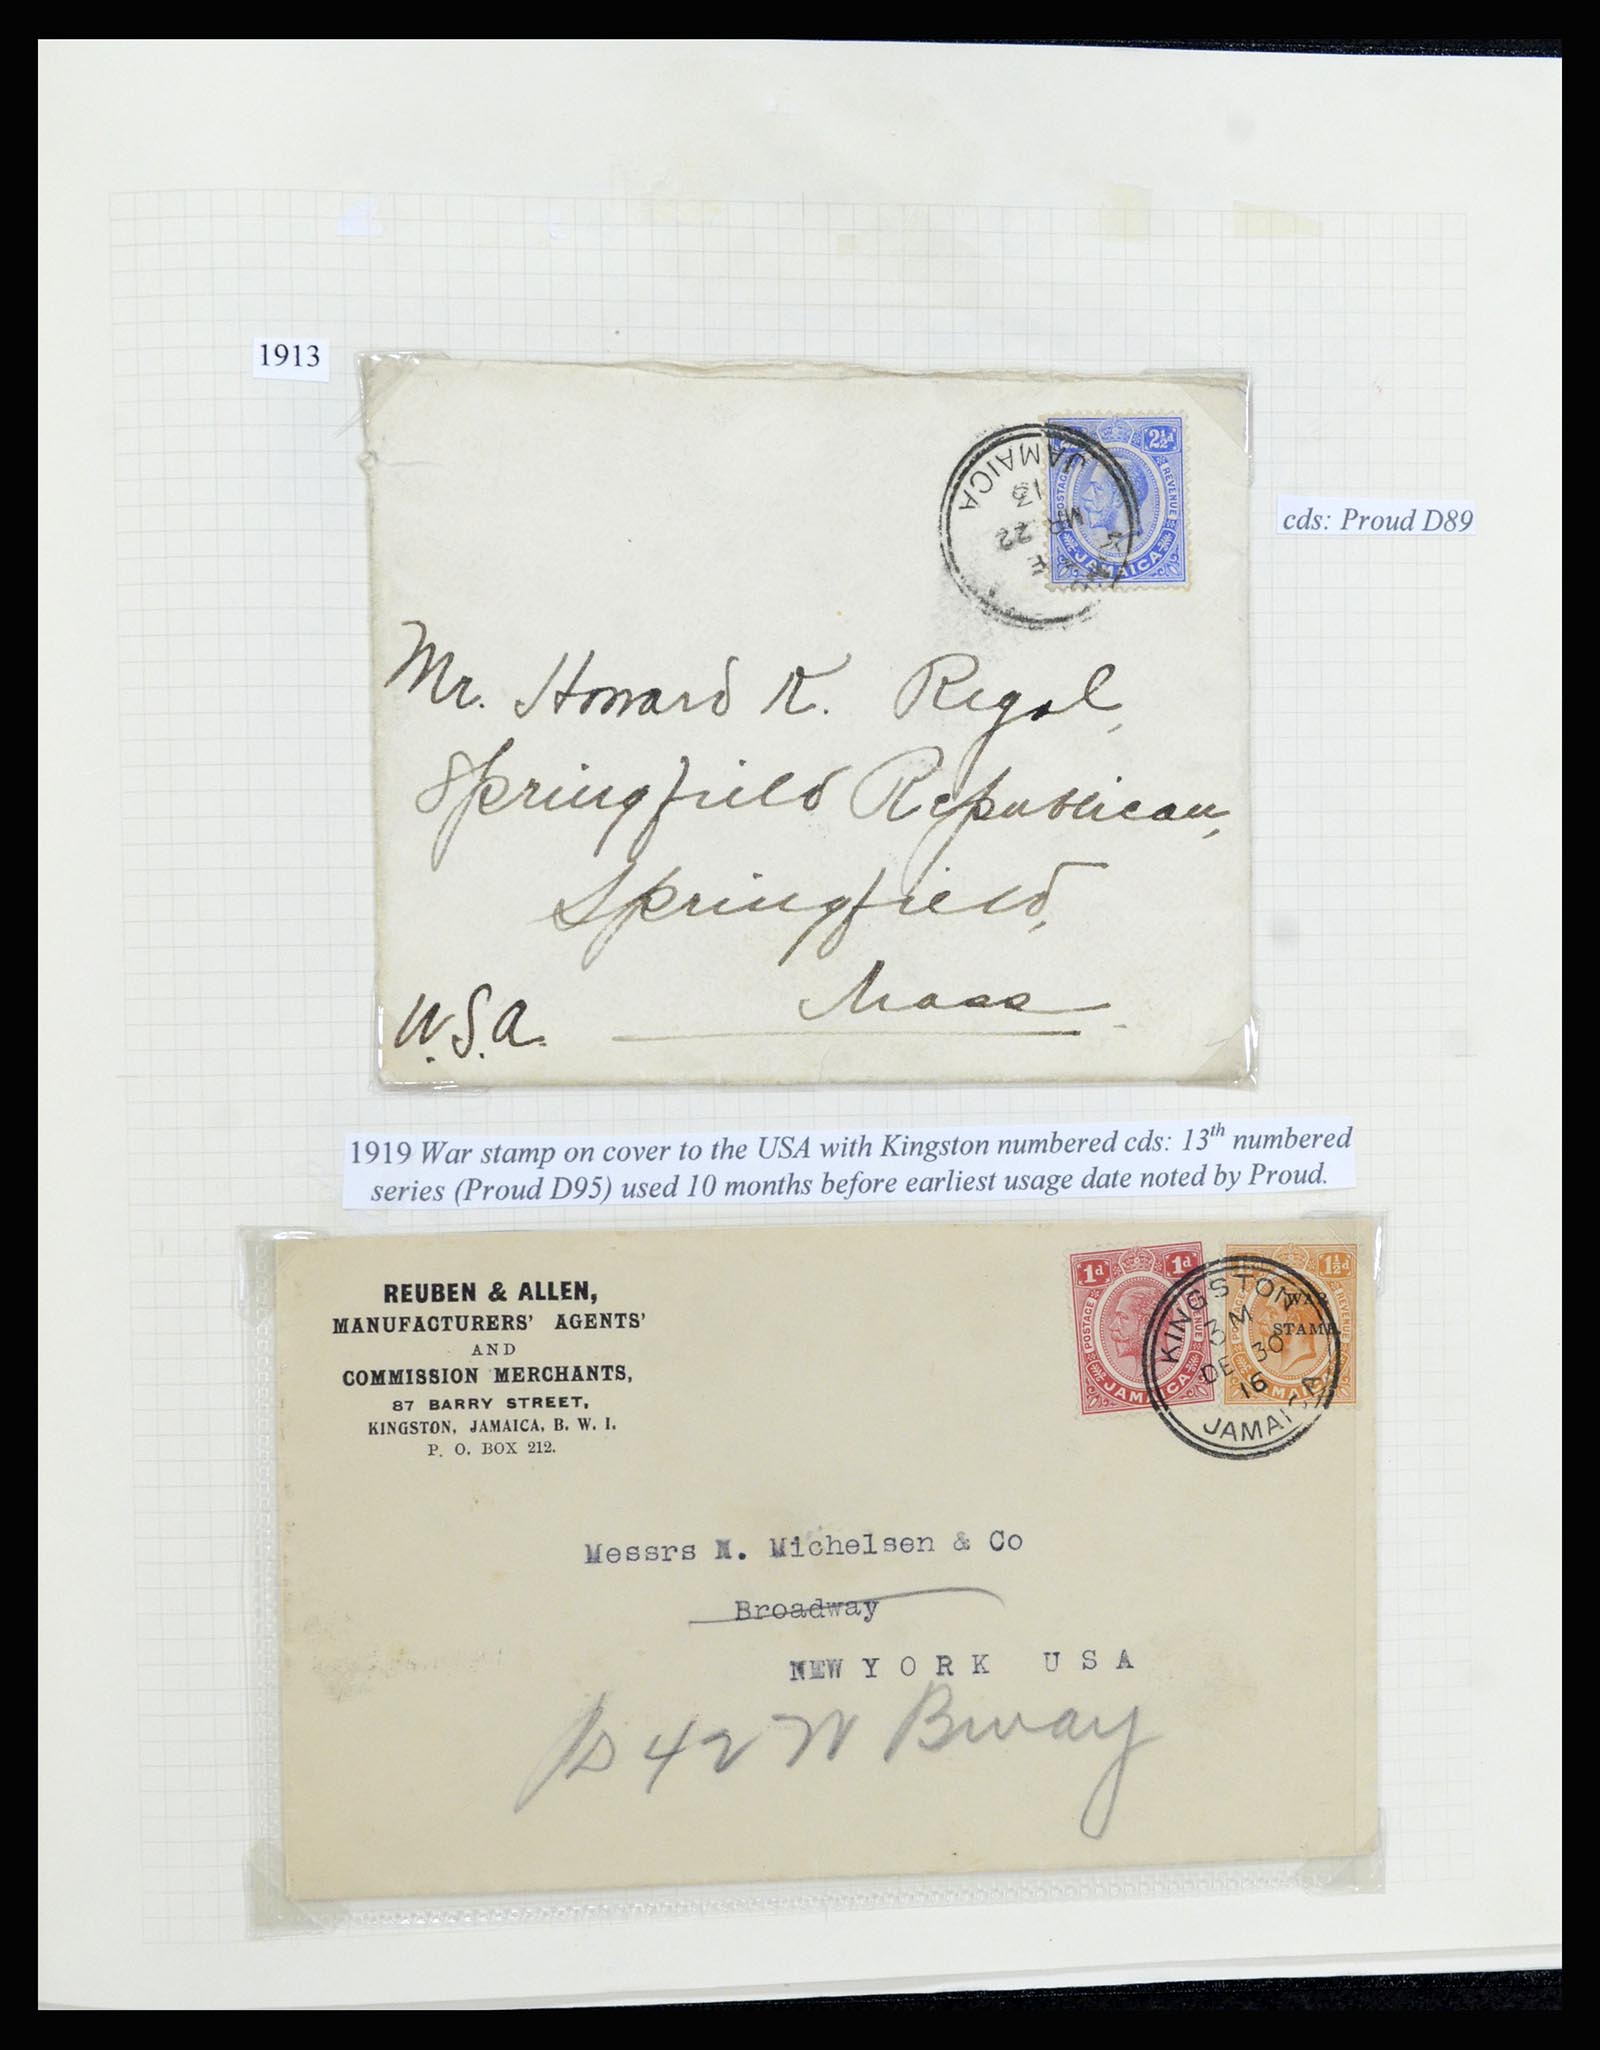 1913
2½d
POSTAGE
REVENUE
JAMAICA
JAMAICA
13
MR 22
cds: Proud D89
Mr. Howard K. Regal,
Springfield Republican,
Springfield,
Mass.
U.S.A.
1919 War stamp on cover to the USA with Kingston numbered cds: 13th numbered
series (Proud D95) used 10 months before earliest usage date noted by Proud.
REUBEN & ALLEN,
MANUFACTURERS' AGENTS'
AND
COMMISSION MERCHANTS,
87 BARRY STREET,
KINGSTON, JAMAICA, B. W. I.
P. O. BOX 212.
1d 1d
POSTAGE
JAMAICA
1½d
REVENUE
WAR
STAMP.
JAMAICA
KINGSTON
3 M
DE 30
16
JAMAICA
Messrs N. Michelsen & Co
Broadway
NEW YORK USA
42 N Bway